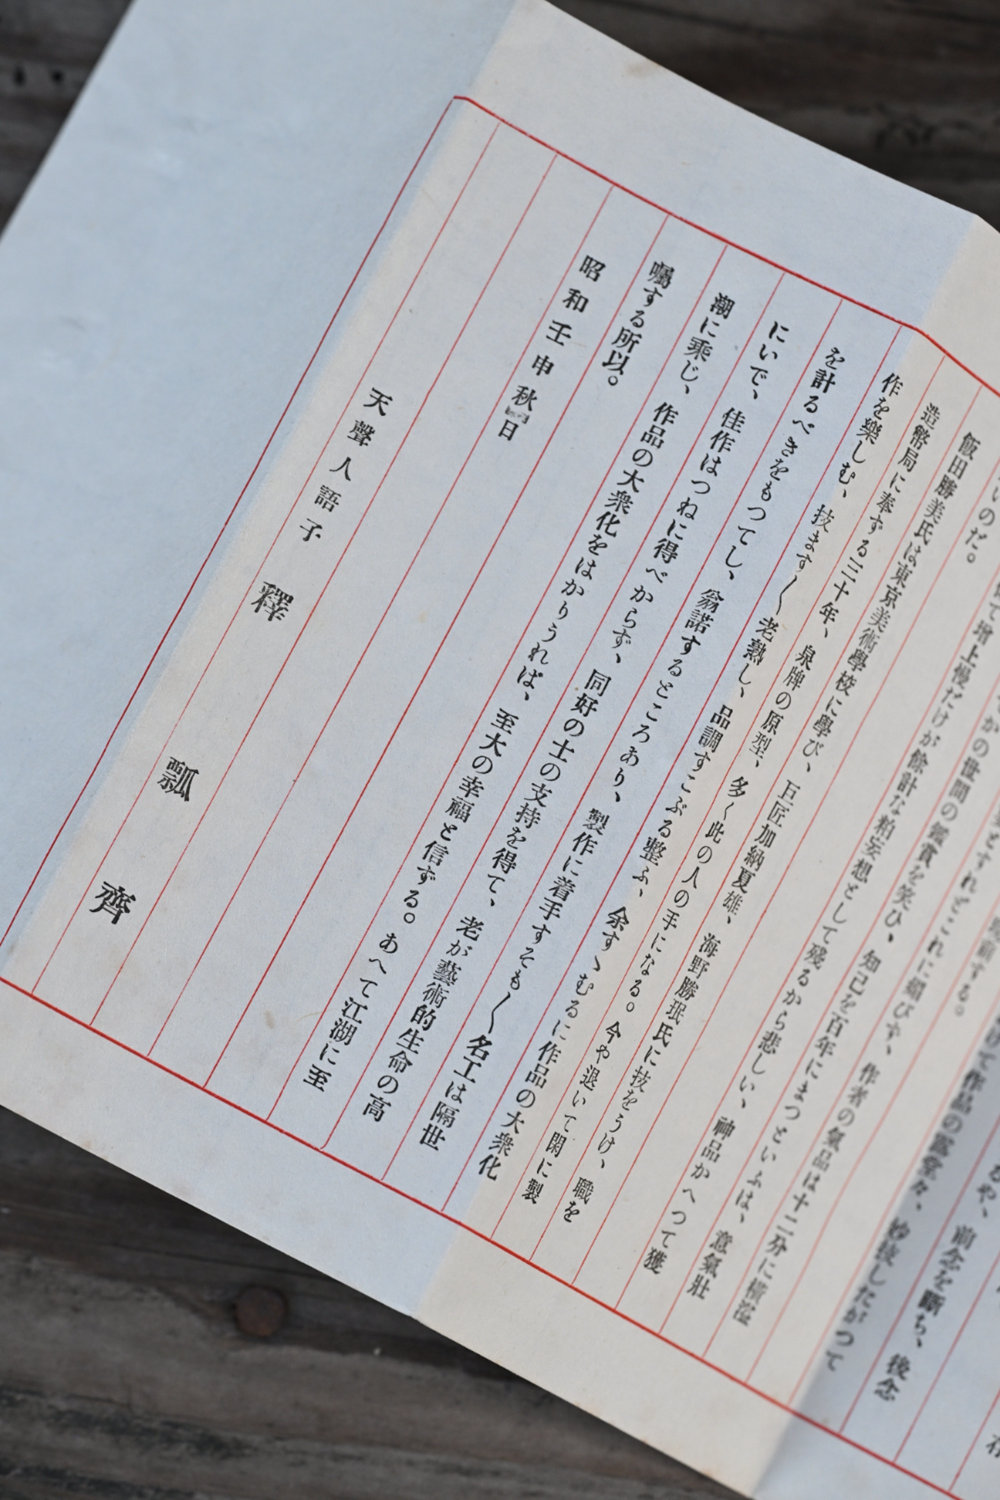 存
前念を斷ち、後念
したがつて
とすれどこれに媚びず、作者の氣品は十二分に横溢
かの世間の鑑賞を笑ひ、知己を百年にまつといふは、意氣壯
て増上慢だけが餘計な粕妄想として殘るから悲しい、神品かへつて獲
いのだ。
飯田勝美氏は東京美術學校に學び、巨匠加納夏雄、海野勝珉氏に技をうけ、職を
造幣局に奉する三十年、泉牌の原型、多く此の人の手になる。今や退いて閑に製
作を樂しむ、技ます〱老熟し、品調すこぶる整ふ、余すゝむるに作品の大衆化
を計るべきをもつてし、翁諾するところあり、製作に着手すそも〱名工は隔世
にいで、佳作はつねに得べからず、同好の士の支持を得て、老が藝術的生命の高
潮に乘じ、作品の大衆化をはかりうれば、至大の幸福と信ずる。あへて江湖に至
囑する所以。
昭和壬申秋日
天聲人語子
釋瓢齊